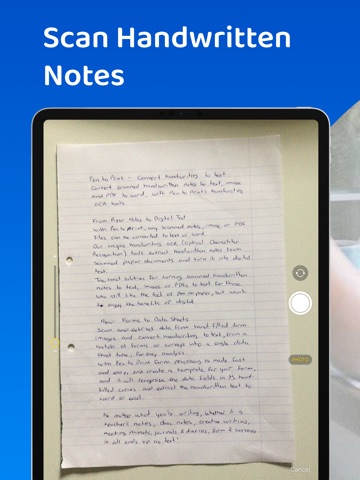 Scan Handwritten
Notes
Pen to Print - Convert handwriting to text.
Convert scanned handwritten notes to text, image
and PDF to word, with Pen to Print's handwriting
OCR tools.
From Paper Notes to Digital Text
With Pen to Print, any scanned notes, image or PDF
files can be converted to text or word.
Our unique handwriting OCR (Optical Character
Recognition) tools extract handwritten notes from
scanned paper documents and turn it into digital
text.
The ideal solution for turning scanned handwritten
notes to text, images or PDFs to text for those
who still like the feel of pen on paper, but want
to enjoy the benefits of digital.
New: Forms to Data Sheets
Scan and extract data from hand filled form
images and convert handwriting to text, from a
batch of forms or surveys into a single data
sheet table, for easy analysis.
With Pen to Print form processing is made fast
and easy, and create a template for your form,
and it will recognise the data fields in the hand-
filled copies and extract the handwritten text to
word or excel.
No matter what you're writing, whether it is
teacher's notes, class notes, creative writing,
meeting minutes, journals & diaries, form & surveys
it all ends up as text!
PHOTO
Cancel